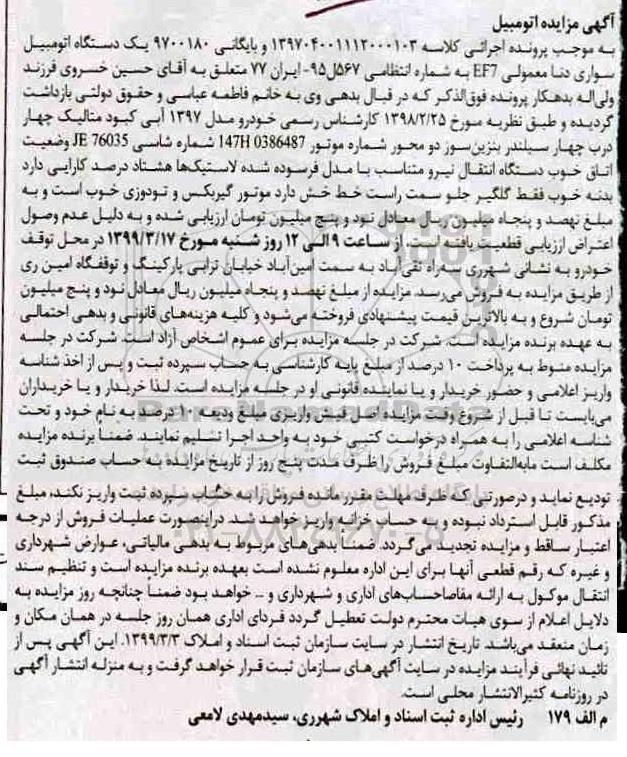 آگهی مزایده اتومبیل
به موجب پرونده اجرائی کلاسه ۱۳۹۷۰۴۰۰۱۱۱۲۰۰۰۱۰۳ و بایگانی ۹۷۰۰۱۸۰ یک دستگاه اتومبیل
سواری دنا معمولی EF7 به شماره انتظامی ۵۶۷ل۹۵- ایران ۷۷ متعلق به آقای حسین خسروی فرزند
ولی‌اله بدهکار پرونده فوق‌الذکر که در قبال بدهی وی به خانم فاطمه عباسی و حقوق دولتی بازداشت
گردیده و طبق نظریه مورخ ۱۳۹۸/۲/۲۵ کارشناس رسمی خودرو مدل ۱۳۹۷ آبی کبود متالیک چهار
درب چهار سیلندر بنزین‌سوز دو محور شماره موتور 147H 0386487 شماره شاسی JE 76035 وضعیت
اتاق خوب دستگاه انتقال نیرو متناسب با مدل فرسوده شده لاستیک‌ها هشتاد درصد کارایی دارد
بدنه خوب فقط گلگیر جلو سمت راست خط خش دارد موتور گیربکس و تودوزی خوب است و به
مبلغ نهصد و پنجاه میلیون ریال معادل نود و پنج میلیون تومان ارزیابی شده و به دلیل عدم وصول
اعتراض ارزیابی قطعیت یافته است. از ساعت ۹ الی ۱۲ روز شنبه مورخ ۱۳۹۹/۳/۱۷ در محل توقف
خودرو به نشانی شهرری سه‌راه تقی‌آباد به سمت امین‌آباد خیابان ترابی پارکینگ و توقفگاه امین ری
از طریق مزایده به فروش می‌رسد. مزایده از مبلغ نهصد و پنجاه میلیون ریال معادل نود و پنج میلیون
تومان شروع و به بالاترین قیمت پیشنهادی فروخته می‌شود و کلیه هزینه‌های قانونی و بدهی احتمالی
به عهده برنده مزایده است. شرکت در جلسه مزایده برای عموم اشخاص آزاد است. شرکت در جلسه
مزایده منوط به پرداخت ۱۰ درصد از مبلغ پایه کارشناسی به حساب سپرده ثبت و پس از اخذ شناسه
واریز اعلامی و حضور خریدار و یا نماینده قانونی او در جلسه مزایده است. لذا خریدار و یا خریداران
می‌بایست تا قبل از شروع وقت مزایده اصل فیش واریزی مبلغ ودیعه ۱۰ درصد به نام خود و تحت
شناسه اعلامی را به همراه درخواست کتبی خود به واحد اجرا تسلیم نمایند. ضمنا برنده مزایده
مکلف است مابه‌التفاوت مبلغ فروش را ظرف مدت پنج روز از تاریخ مزایده به حساب صندوق ثبت
تودیع نماید و درصورتی که ظرف مهلت مقرر مانده فروش را به حساب سپرده ثبت واریز نکند، مبلغ
مذکور قابل استرداد نبوده و به حساب خزانه واریز خواهد شد. دراینصورت عملیات فروش از درجه
اعتبار ساقط و مزایده تجدید می‌گردد. ضمنا بدهی‌های مربوط به بدهی مالیاتی، عوارض شهرداری
و غیره که رقم قطعی آنها برای این اداره معلوم نشده است بعهده برنده مزایده است و تنظیم سند
انتقال موکول به ارائه مفاصاحساب‌های اداری و شهرداری و ... خواهد بود ضمناً چنانچه روز مزایده به
دلایل اعلام از سوی هیات محترم دولت تعطیل گردد فردای اداری همان روز جلسه در همان مکان و
زمان منعقد می‌باشد. تاریخ انتشار در سایت سازمان ثبت اسناد و املاک ۱۳۹۹/۳/۳. این آگهی پس از
تائید نهائی فرآیند مزایده در سایت آگهی‌های سازمان ثبت قرار خواهد گرفت و به منزله انتشار آگهی
در روزنامه کثیرالانتشار محلی است.
م الف ۱۷۹ رئیس اداره ثبت اسناد و املاک شهرری، سیدمهدی لامعی